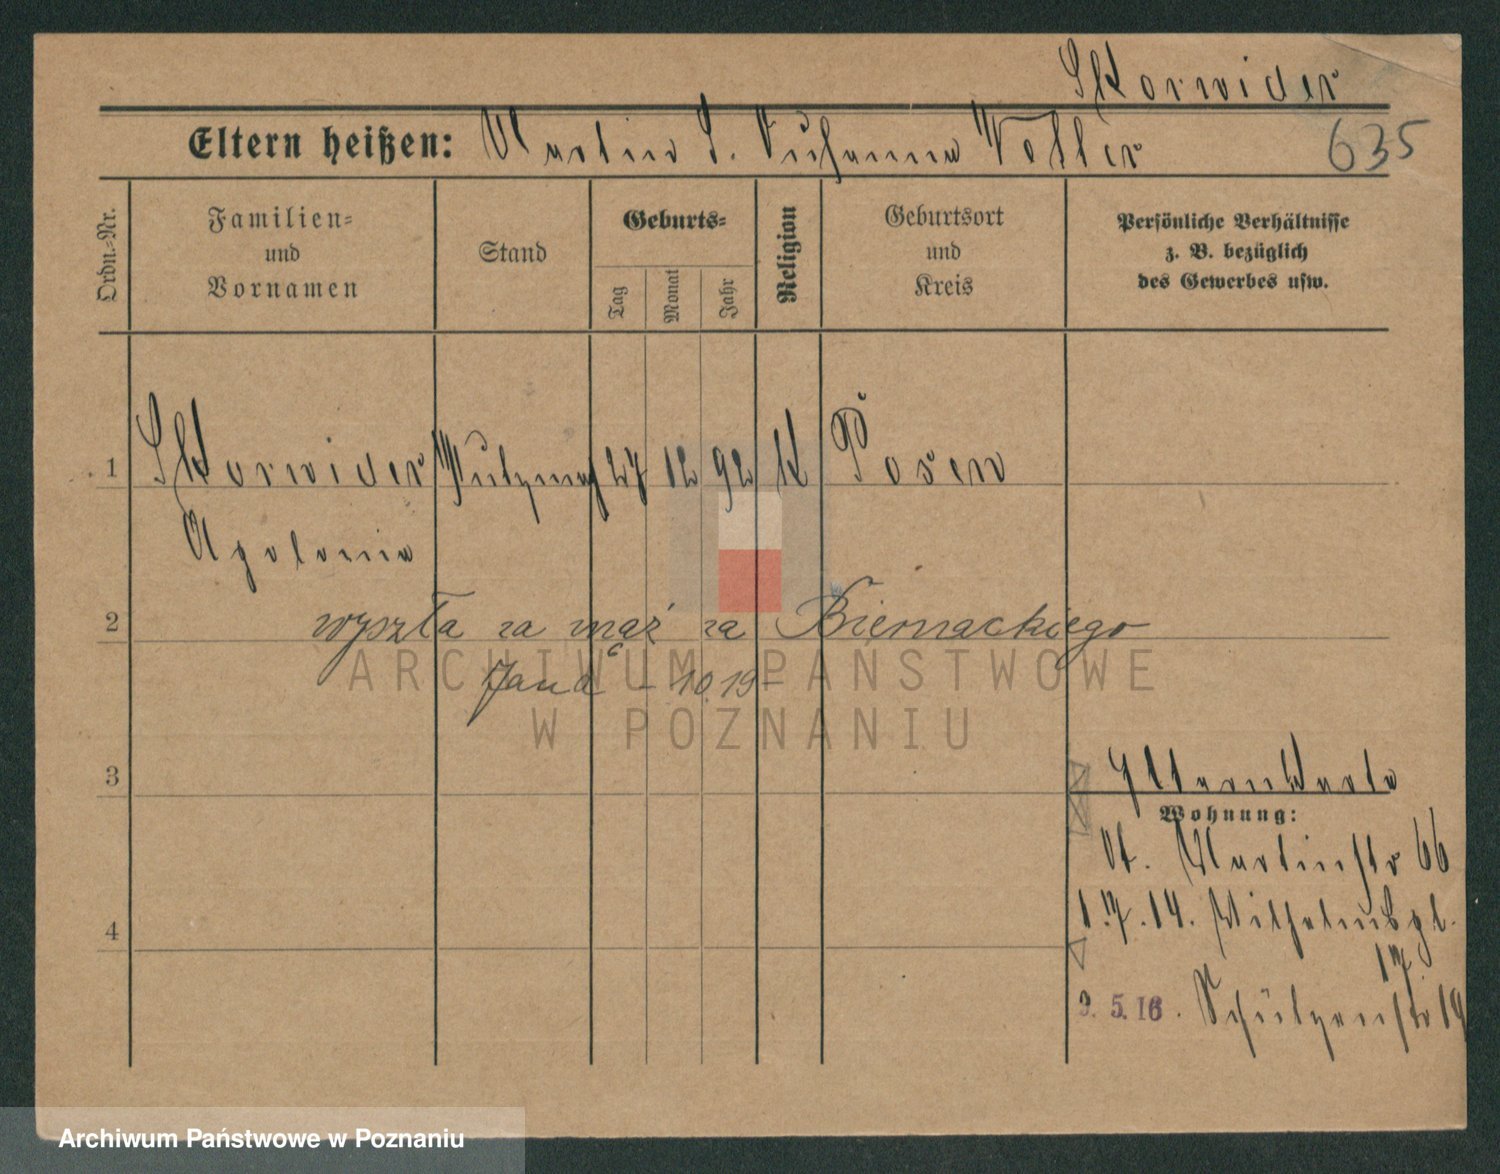 Skorwider
Eltern heißen: Martin S. Susanna Voller
635
Ordn.-Nr.
Familien-
und
Vornamen
Stand
Geburts-
Tag
Monat
Jahr
Religion
Geburtsort
und
Kreis
Persönliche Verhältnisse
z. B. bezüglich
des Gewerbes usw.
1 Skorwider 27 12 92 K Posen
Apolonia
2 wyszła za mąż za Biernackiego
Jana - 10.19 -
3
Wohnung:
St. Martinstr 66
1.7.14. Wilhelmspl.
17
4
9. 5. 16. Schützenstr 19
ARCHIWUM PAŃSTWOWE
W POZNANIU
Archiwum Państwowe w Poznaniu